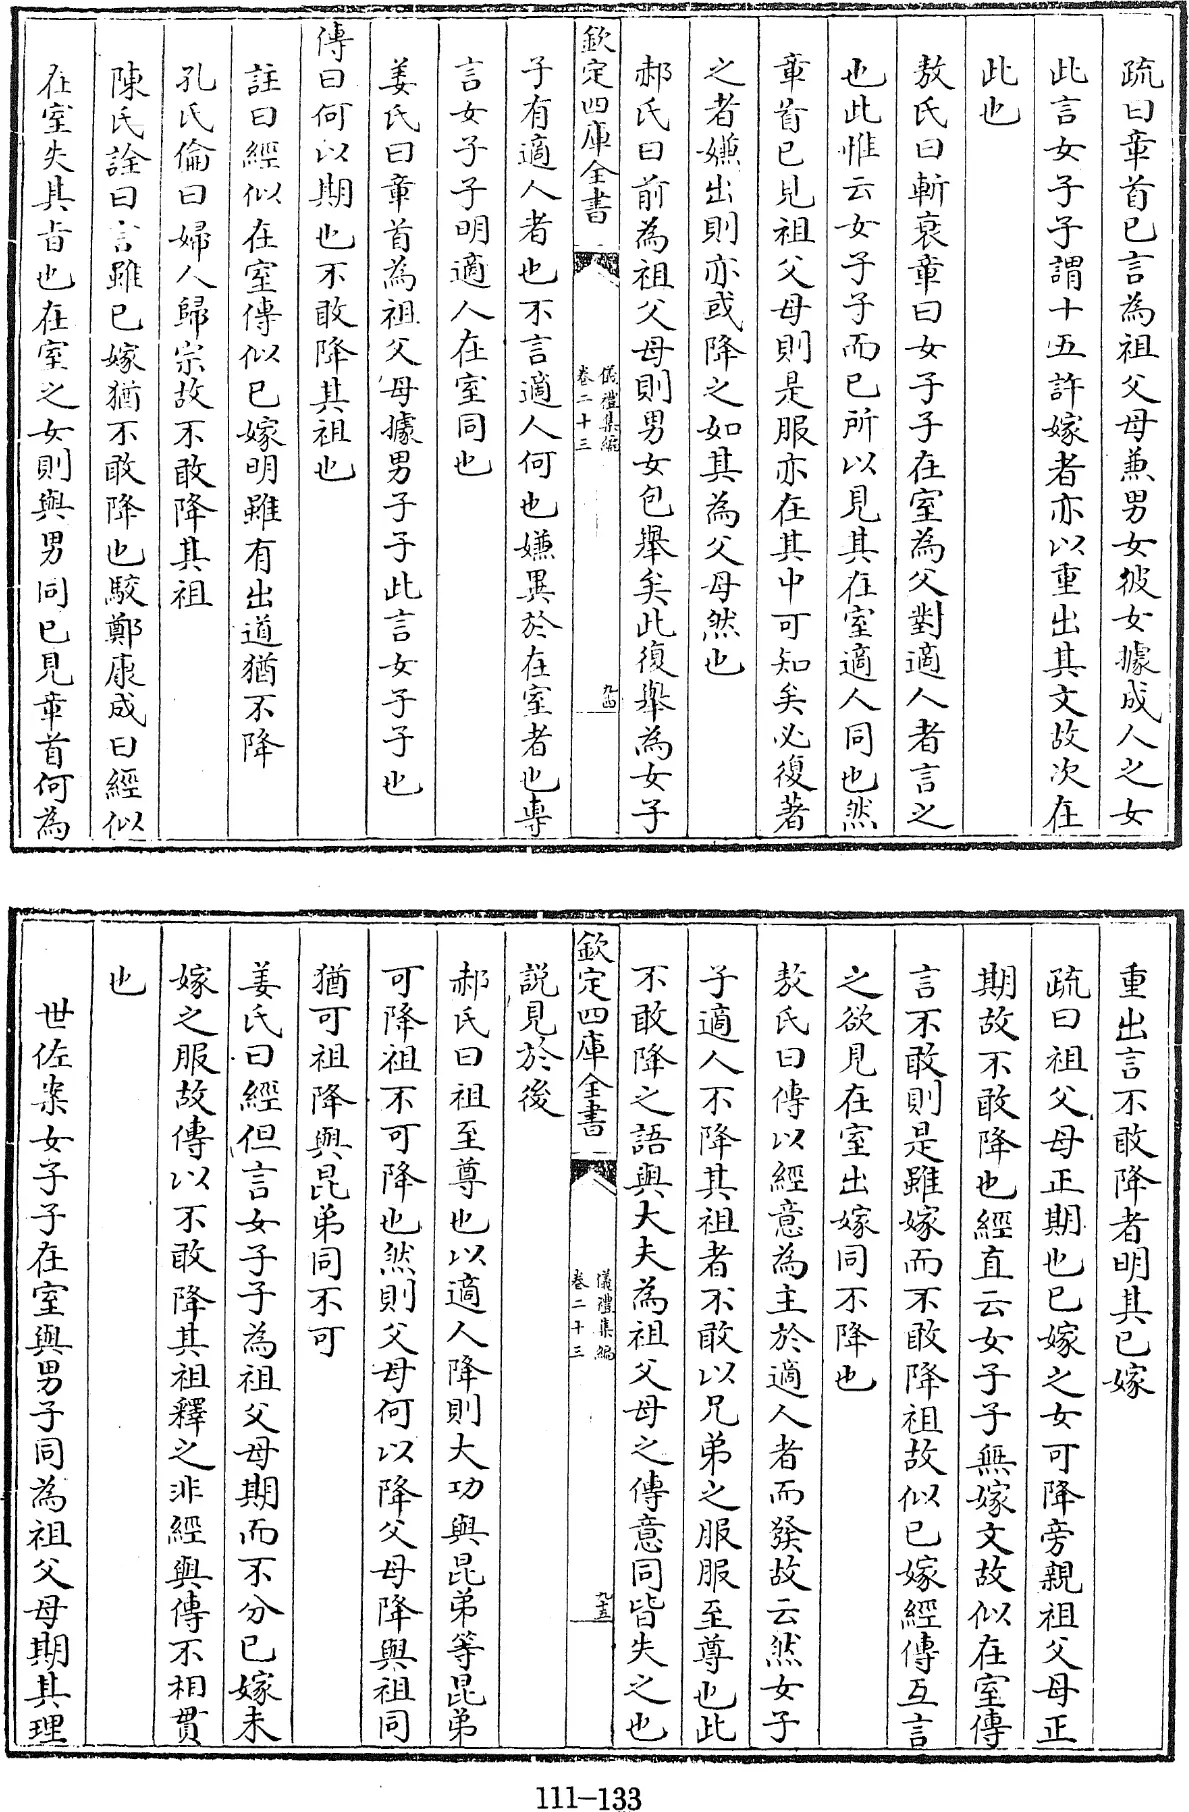 疏曰章首已言為祖父母兼男女彼女據成人之女
此言女子子謂十五許嫁者亦以重出其文故次在
此也
敖氏曰斬衰章曰女子子在室為父對適人者言之
也此惟云女子子而已所以見其在室適人同也然
章首已見祖父母則是服亦在其中可知矣必復著
之者嫌出則亦或降之如其為父母然也
郝氏曰前為祖父母則男女包舉矣此復舉為女子
欽定四庫全書
儀禮集編
卷二十三
九四
子有適人者也不言適人何也嫌異於在室者也專
言女子子明適人在室同也
姜氏曰章首為祖父母據男子子此言女子子也
傳曰何以期也不敢降其祖也
註曰經似在室傳似已嫁明雖有出道猶不降
孔氏倫曰婦人歸宗故不敢降其祖
陳氏詮曰言雖已嫁猶不敢降也駮鄭康成曰經似
在室失其旨也在室之女則與男同已見章首何為
重出言不敢降者明其已嫁
疏曰祖父母正期也已嫁之女可降旁親祖父母正
期故不敢降也經直云女子子無嫁文故似在室傳
言不敢則是雖嫁而不敢降祖故似已嫁經傳互言
之欲見在室出嫁同不降也
敖氏曰傳以經意為主於適人者而發故云然女子
子適人不降其祖者不敢以兄弟之服服至尊也此
不敢降之語與大夫為祖父母之傳意同皆失之也
欽定四庫全書
儀禮集編
卷二十三
九五
説見於後
郝氏曰祖至尊也以適人降則大功與昆弟等昆弟
可降祖不可降也然則父母何以降父母降與祖同
猶可祖降與昆弟同不可
姜氏曰經但言女子子為祖父母期而不分已嫁未
嫁之服故傳以不敢降其祖釋之非經與傳不相貫
也
世佐案女子子在室與男子同為祖父母期其理
111-133